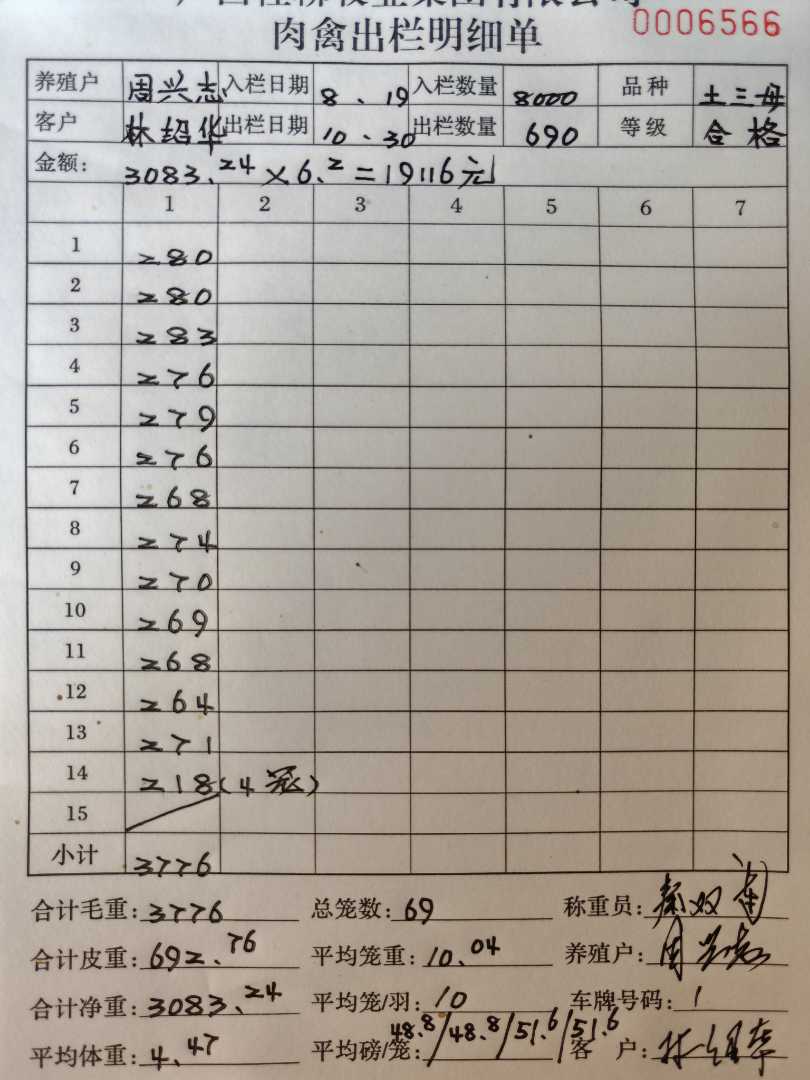 肉禽出栏明细单 0006566
养殖户 周兴志 入栏日期 8.19 入栏数量 8000 品种 土三母
客户 林绍华 出栏日期 10.30 出栏数量 690 等级 合格
金额: 3083.24×6.2=19116元
1 2 3 4 5 6 7
1 280
2 280
3 283
4 276
5 279
6 276
7 268
8 274
9 270
10 269
11 268
12 264
13 271
14 218(4笼)
15
小计 3776
合计毛重: 3776 总笼数: 69 称重员:
合计皮重: 692.76 平均笼重: 10.04 养殖户: 周兴志
合计净重: 3083.24 平均笼/羽: 10 车牌号码: 1
平均体重: 4.47 平均磅/笼: 48.8/48.8/51.6/51.6 客户: 林绍华